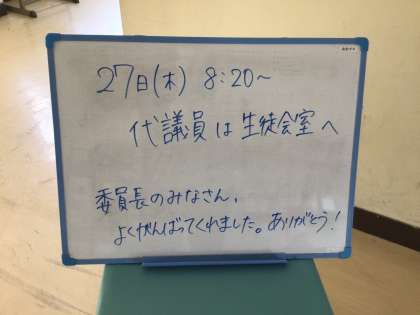 27日(木) 8:20～
代議員は生徒会室へ
委員長のみなさん、
よくがんばってくれました。ありがとう!